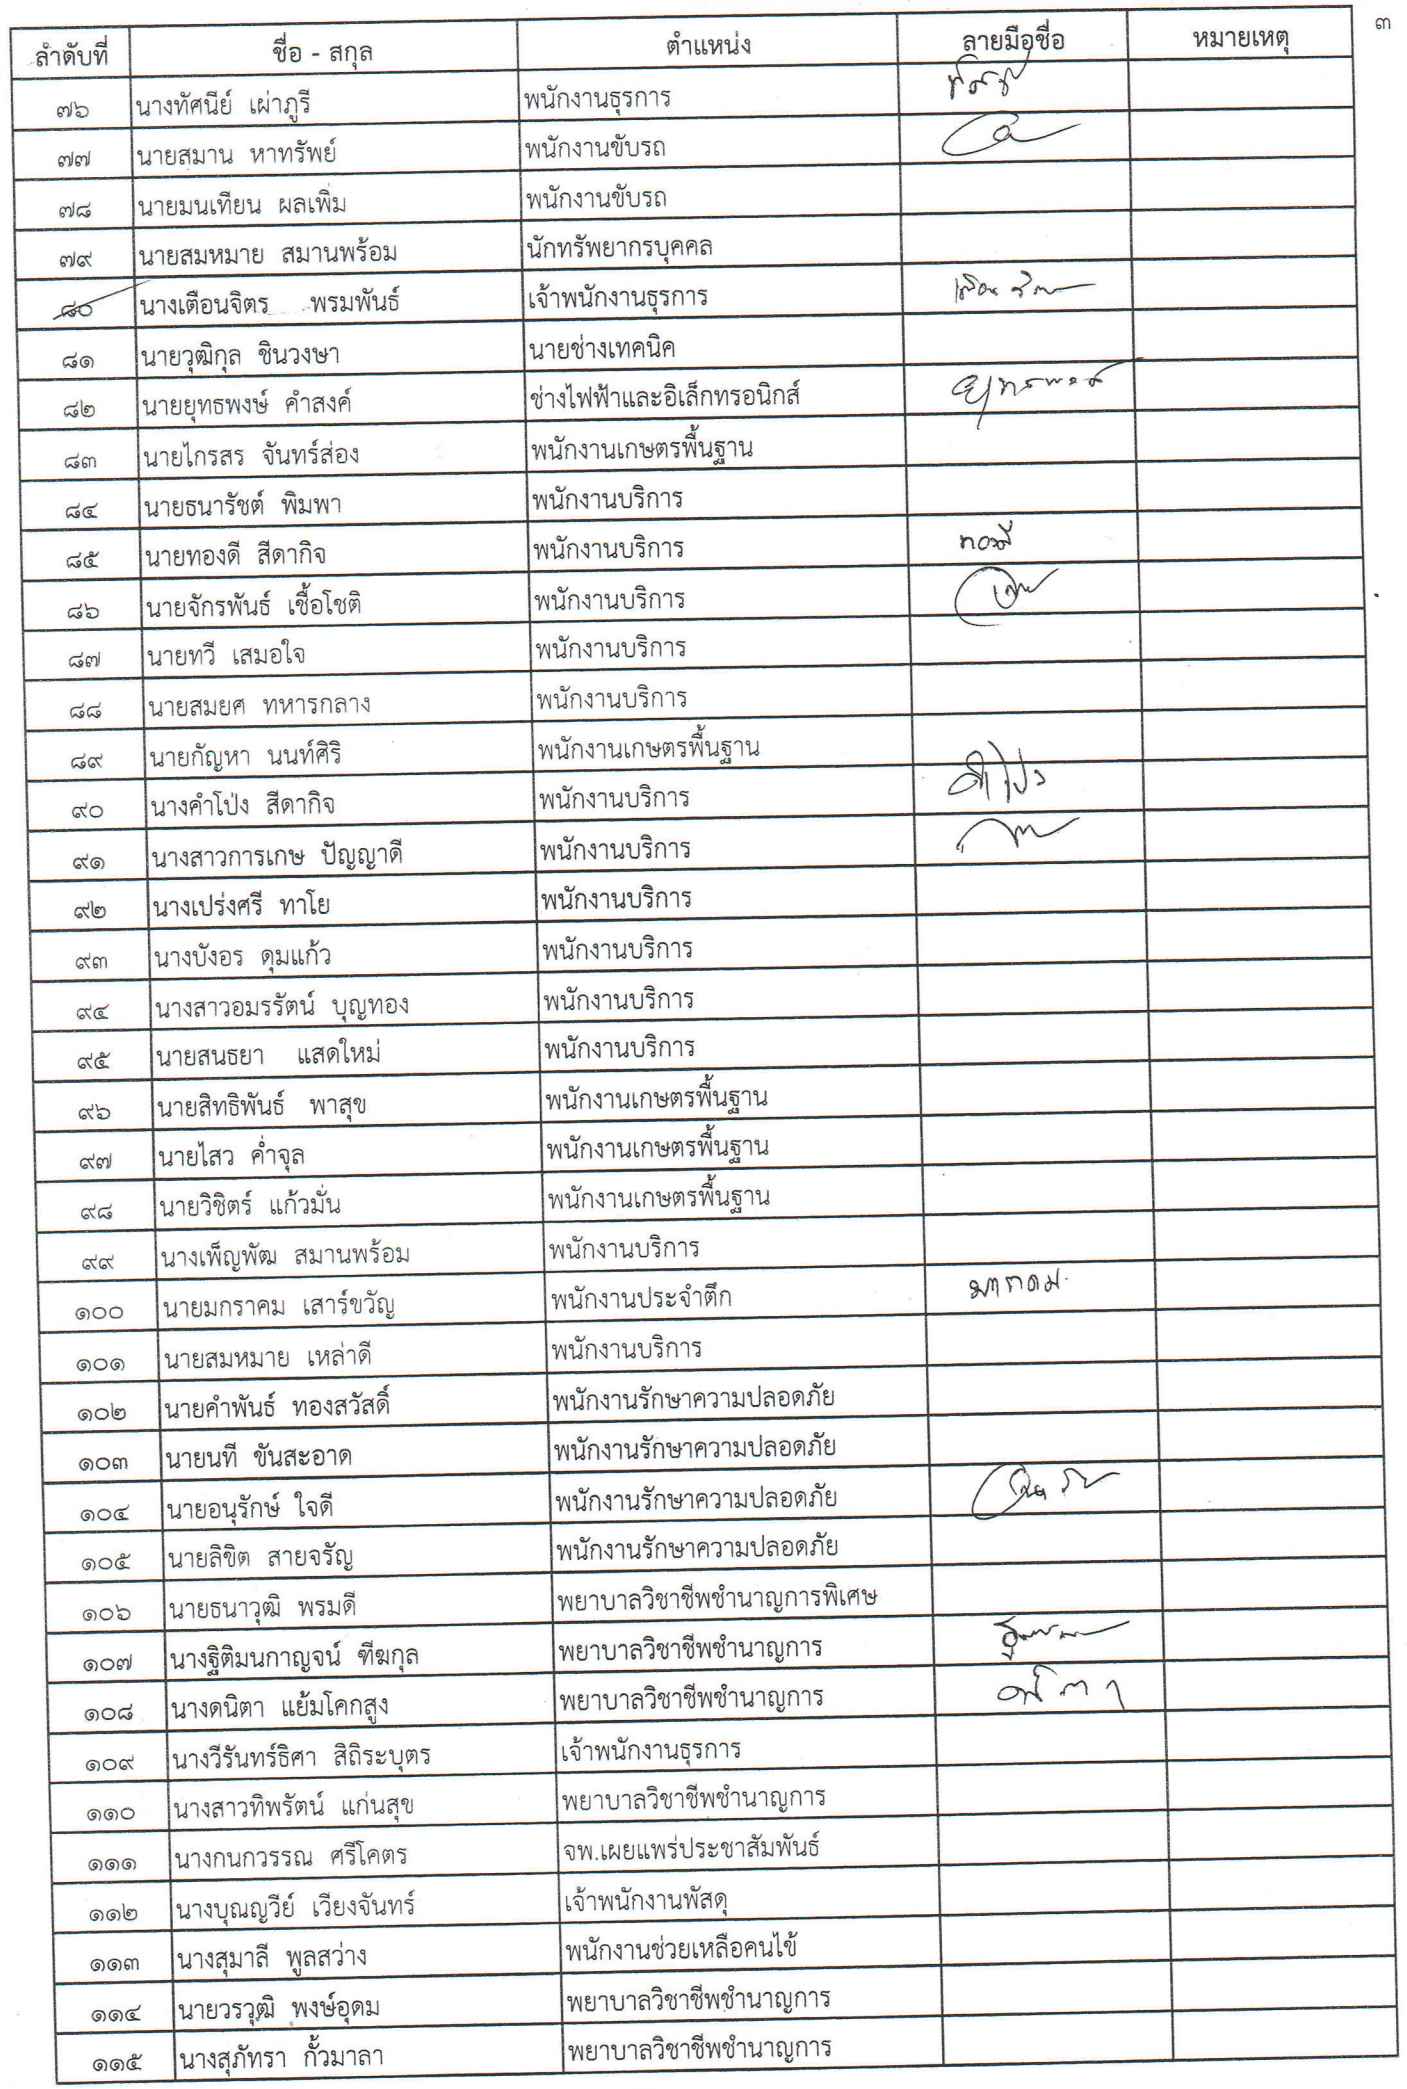 ๓
ลำดับที่ ชื่อ - สกุล ตำแหน่ง ลายมือชื่อ หมายเหตุ
๗๖ นางทัศนีย์ เผ่าภูรี พนักงานธุรการ
๗๗ นายสมาน หาทรัพย์ พนักงานขับรถ
๗๘ นายมนเทียน ผลเพิ่ม พนักงานขับรถ
๗๙ นายสมหมาย สมานพร้อม นักทรัพยากรบุคคล
๘๐ นางเตือนจิตร พรมพันธ์ เจ้าพนักงานธุรการ
๘๑ นายวุฒิกุล ชินวงษา นายช่างเทคนิค
๘๒ นายยุทธพงษ์ คำสงค์ ช่างไฟฟ้าและอิเล็กทรอนิกส์
๘๓ นายไกรสร จันทร์ส่อง พนักงานเกษตรพื้นฐาน
๘๔ นายธนารัชต์ พิมพา พนักงานบริการ
๘๕ นายทองดี สีดากิจ พนักงานบริการ
๘๖ นายจักรพันธ์ เชื้อโชติ พนักงานบริการ
๘๗ นายทวี เสมอใจ พนักงานบริการ
๘๘ นายสมยศ ทหารกลาง พนักงานบริการ
๘๙ นายกัญหา นนท์ศิริ พนักงานเกษตรพื้นฐาน
๙๐ นางคำโป่ง สีดากิจ พนักงานบริการ คำโป่ง
๙๑ นางสาวการเกษ ปัญญาดี พนักงานบริการ
๙๒ นางเปร่งศรี ทาโย พนักงานบริการ
๙๓ นางบังอร ดุมแก้ว พนักงานบริการ
๙๔ นางสาวอมรรัตน์ บุญทอง พนักงานบริการ
๙๕ นายสนธยา แสดใหม่ พนักงานบริการ
๙๖ นายสิทธิพันธ์ พาสุข พนักงานเกษตรพื้นฐาน
๙๗ นายไสว ค่ำจุล พนักงานเกษตรพื้นฐาน
๙๘ นายวิชิตร์ แก้วมั่น พนักงานเกษตรพื้นฐาน
๙๙ นางเพ็ญพัฒ สมานพร้อม พนักงานบริการ
๑๐๐ นายมกราคม เสาร์ขวัญ พนักงานประจำตึก
๑๐๑ นายสมหมาย เหล่าดี พนักงานบริการ
๑๐๒ นายคำพันธ์ ทองสวัสดิ์ พนักงานรักษาความปลอดภัย
๑๐๓ นายนที ขันสะอาด พนักงานรักษาความปลอดภัย
๑๐๔ นายอนุรักษ์ ใจดี พนักงานรักษาความปลอดภัย
๑๐๕ นายลิขิต สายจรัญ พนักงานรักษาความปลอดภัย
๑๐๖ นายธนาวุฒิ พรมดี พยาบาลวิชาชีพชำนาญการพิเศษ
๑๐๗ นางฐิติมนกาญจน์ ทีฆกุล พยาบาลวิชาชีพชำนาญการ
๑๐๘ นางดนิตา แย้มโคกสูง พยาบาลวิชาชีพชำนาญการ
๑๐๙ นางวีรันทร์ธิศา สิถิระบุตร เจ้าพนักงานธุรการ
๑๑๐ นางสาวทิพรัตน์ แก่นสุข พยาบาลวิชาชีพชำนาญการ
๑๑๑ นางกนกวรรณ ศรีโคตร จพ.เผยแพร่ประชาสัมพันธ์
๑๑๒ นางบุณญวีย์ เวียงจันทร์ เจ้าพนักงานพัสดุ
๑๑๓ นางสุมาลี พูลสว่าง พนักงานช่วยเหลือคนไข้
๑๑๔ นายวรวุฒิ พงษ์อุดม พยาบาลวิชาชีพชำนาญการ
๑๑๕ นางสุภัทรา กั้วมาลา พยาบาลวิชาชีพชำนาญการ